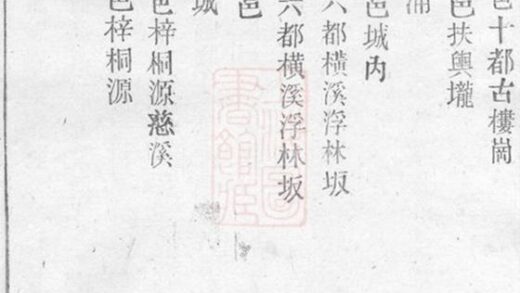 邑十都古樓崗
邑扶輿壠
浦
邑城内
六都橫溪浮林坂
六都橫溪浮林坂
邑
城
邑梓桐源慈溪
邑梓桐源